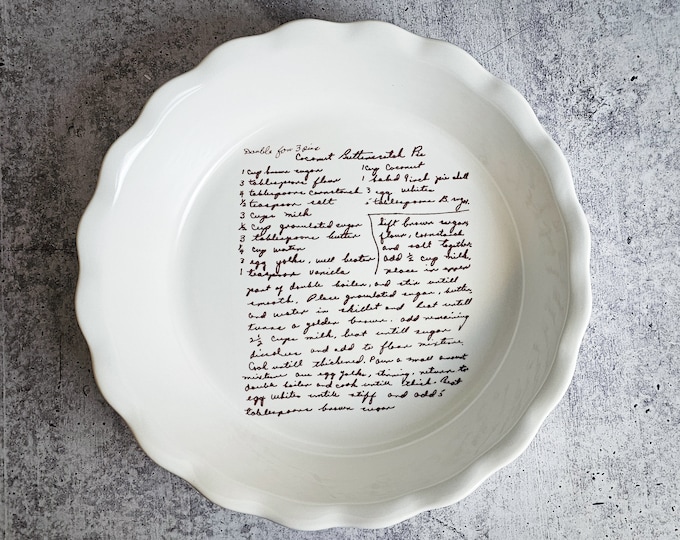 Double for 3 pies
Coconut Butterscotch Pie
1 cup brown sugar
3 tablespoons flour
4 tablespoons cornstarch
½ teaspoon salt
3 cups milk
½ cup granulated sugar
3 tablespoons butter
¼ cup water
3 egg yolks, well beaten
1 teaspoon vanilla
1 cup Coconut
1 baked 9 inch pie shell
3 egg whites
5 tablespoons B. sugar
Sift brown sugar,
flour, cornstarch
and salt together,
add ½ cup milk,
place in upper
part of double boiler, and stir untill
smooth. Place granulated sugar, butter,
and water in skillet and heat untill
turns a golden brown. add remaining
2½ cups milk, heat untill sugar
disolves and add to flour mixture.
Cook untill thickened. Pour a small amount
mixture over egg yolks, stirring, return to
double boiler and cook untill thick. Beat
egg whites untile stiff and add 5
tablespoons brown sugar